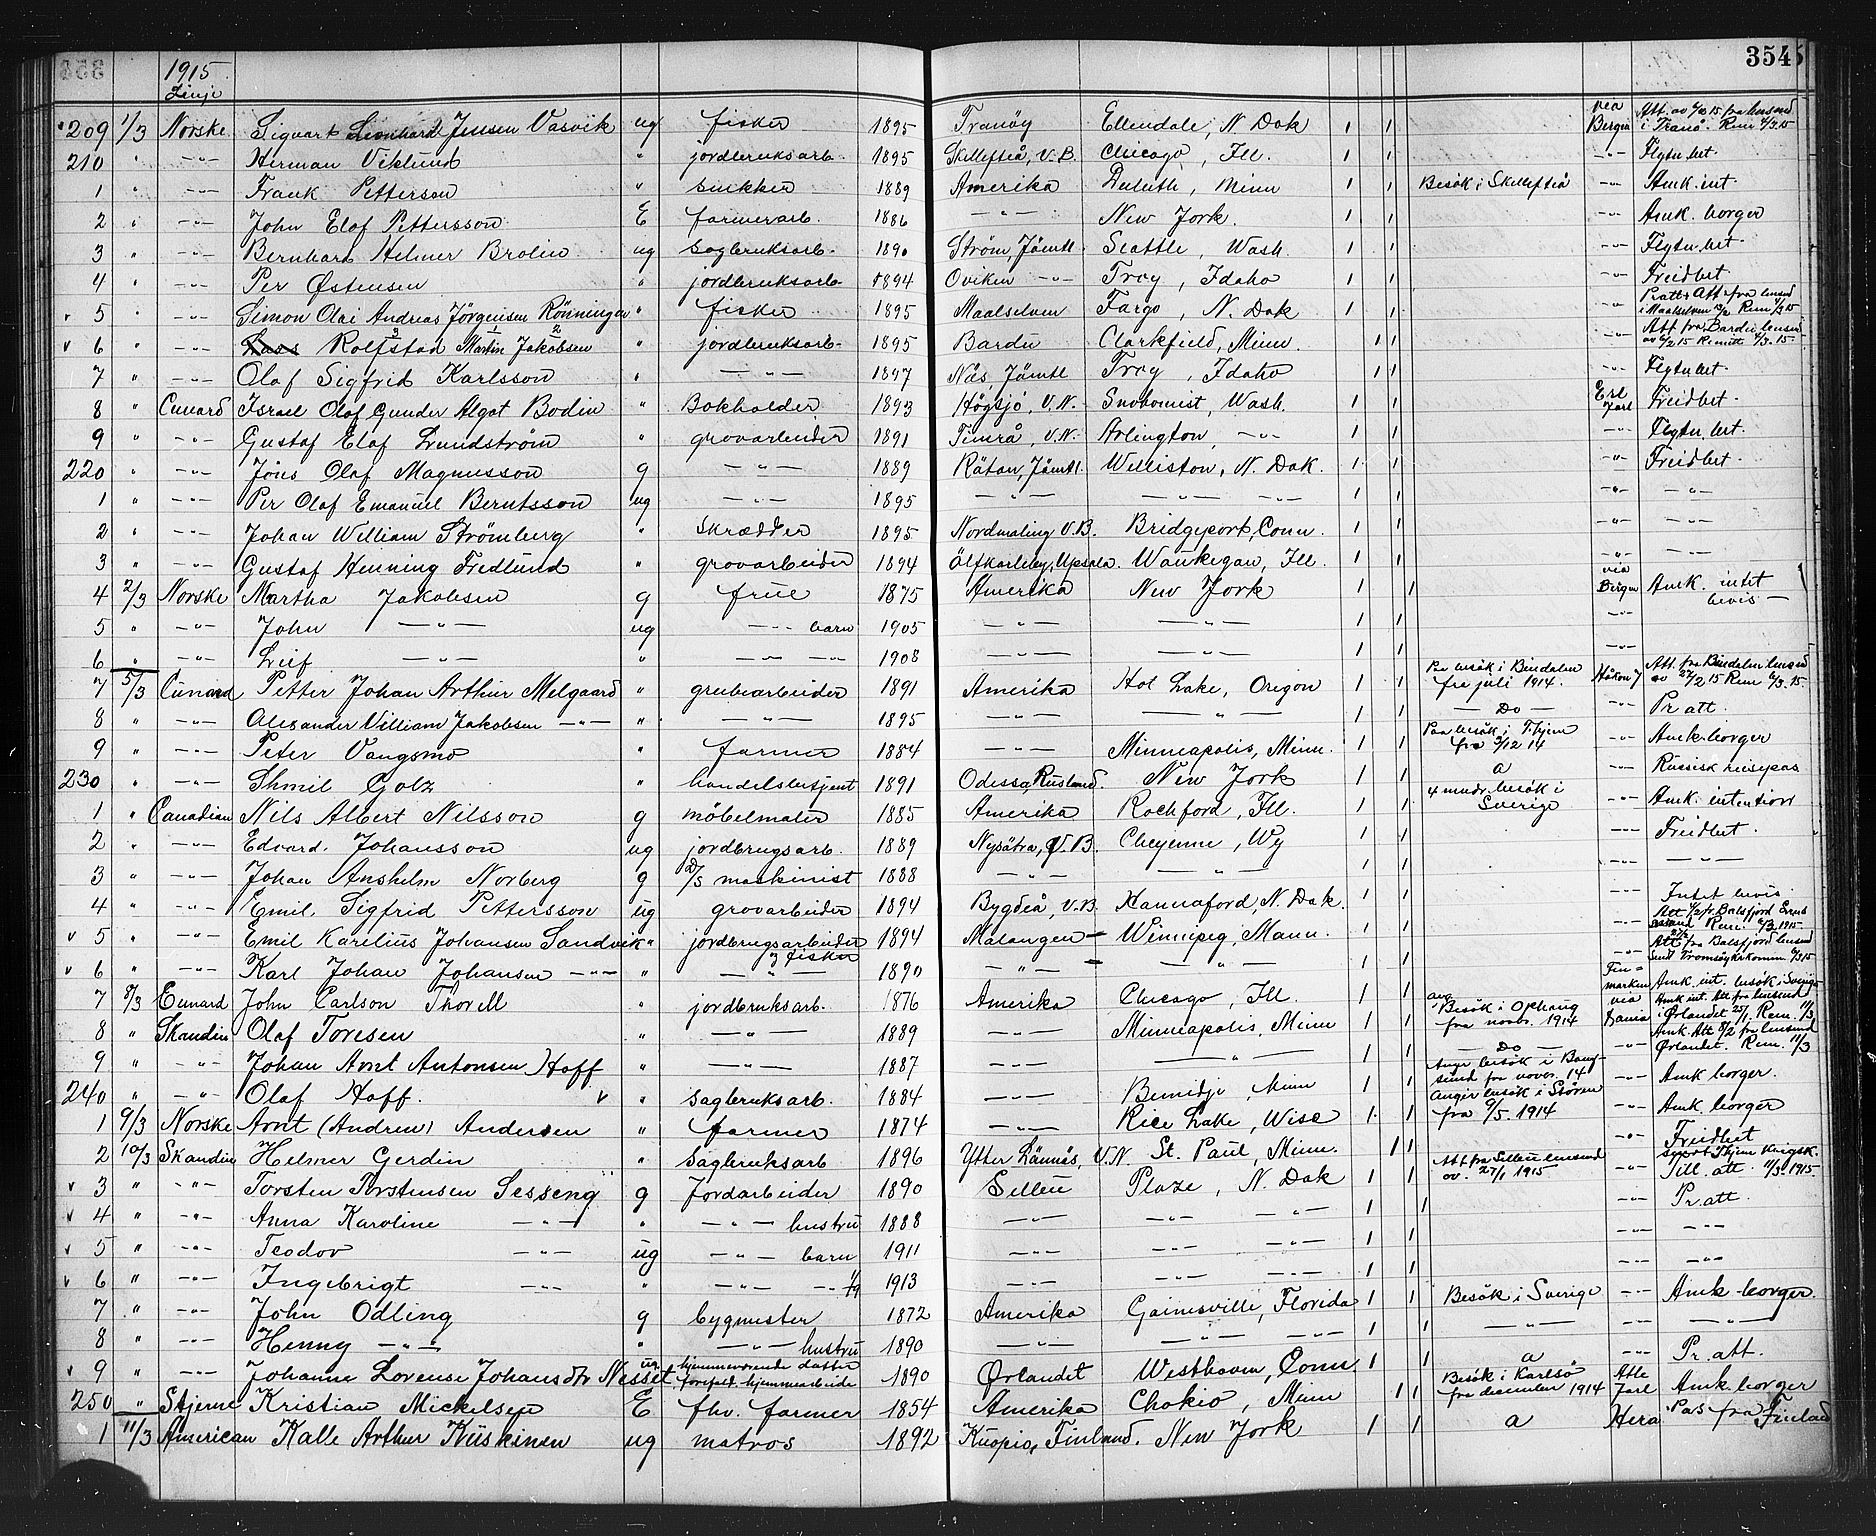 1915 3545
Linje
209 1/3 Norske Sigvart Leonhard Jensen Vasvik ug fisker 1895 Tranöy Ellendale, N. Dak 1 1 via Bergen Att. av 15 fra lensmd i Tranö. Rem 4/3.15
210 " -"- Herman Viklund " jordbruksarb. 1895 Skillefteå, V.B. Chicago, Ill. 1 1 -"- Flytn.bet.
1 " -"- Frank Petterson " snikker 1889 Amerika Duluth, Minn 1 1 Besök i Skillefteå -"- Amk. int.
2 " -"- John Elof Pettersson E farmerarb. 1886 -"- New York. 1 1 -"- Amk. borger
3 " -"- Bernhard Helmer Brolin ug sagbruksarb. 1890 Ström, Jämtl. Seattle, Wash. 1 1 -"- Flytn.bet.
4 " -"- Per Østensen " jordbruksarb. 1894 Oviken -"- Troy, Idaho 1 1 -"- Freidbet.
v 5 " -"- Simon Olai Andreas Jörgensen Rönningen " fisker 1895 Maalselven Fargo, N. Dak 1 1 -"- Att fra lensmd i Maalselven /2 Rem /3 15
v 6 " -"- Rolfstad Martin Jakobsen " jordbruksarb. 1895 Bardu Clarkfield, Minn. 1 1 -"- Att fra Bardu lensm av 6/2 15 Remitt 5/3.15
7 " -"- Olaf Sigfrid Karlsson " -"- 1897 Näs, Jämtl Troy, Idaho 1 1 -"- Flytn.bet.
8 " Cunard Israel Olof Gunder Algot Bodin " Bokholder 1893 Högsjö, V.N. Snohomist, Wash. 1 1 Erl Jarl Freidbet.
9 " -"- Gustaf Elof Lundström " grovarbeider 1891 Timrå, V.N. Arlington, -"- 1 1 -"- Flytn.bet.
220 " -"- Jöns Olof Magnusson g -"- 1889 Rätan, Jämtl. Williston, N. Dak. 1 1 -"- Freidbet.
1 " -"- Per Olof Emanuel Berntsson ug -"- 1895 -"- -"- -"- 1 1 -"- -"-
2 " -"- Johan William Strömberg " Skrædder 1895 Nordmaling V.B. Bridgeport, Conn. 1 1 -"- -"-
3 " -"- Gustaf Henning Fredlund " grovarbeider 1894 Älfkarleby, Upsala. Waukegan, Ill. 1 1 -"- -"-
4 2/3 Norske Martha Jakobsen g frue 1875 Amerika New York 1 1 via Bergen Amk. intet bevis -
5 " -"- John -"- ug -"- barn 1905 -"- -"- 1 1 -"-
6 " -"- Leif -"- " -"- -"- 1908 -"- 1 1 -"-
7 5/3 Cunard Petter Johan Arthur Melgaard " grubearbeider 1891 Amerika Hot Lake, Oregon 1 1 Paa besök i Bindalen fra juli 1914. Håkon 7 Att. fra Bindalen lensmd av 27/2 15 Rem 6/3.15.
8 " -"- Alexander Villiam Jakobsen -"- " -"- 1895 -"- -"- 1 1 - Do - -"- Pr att.
9 " -"- Peter Vangsmo " farmer 1884 -"- Minneapolis, Minn. 1 1 Paa besök i Thjem fra 9/12 14 -"- Amk. borger
230 " -"- Shmil Golz " handelsbetjent 1891 Odessa, Rusland. New York 1 1 a -"- Russisk reisepas
1 " Canadian Nils Albert Nilsson g möbelmaler 1885 Amerika Rockford, Ill. 1 1 4 mndr. besök i Sverige -"- Amk. intention
2 " -"- Edvard. Johansson ug jordbrugsarb. 1889 Nysätra, V.B. Cheyenne, Wy 1 1 -"- Freidbet.
3 " -"- Johan Anshelm Norberg g D/S maskinist 1888 -"- -"- 1 1 -"- -"-
4 " -"- Emil. Sigfrid Pettersson ug grovarbeider 1894 Bygdeå, V.B. Hannaford, N. Dak. 1 1 -"- Intet bevis.
v 5 " -"- Emil Karelius Johansen Sandvik " jordbrugsarbeider 1894 Malangen - Winnipeg, Mann. 1 1 -"- Att fr. Balsfjord Rem. 6/3.1915.
v 6 " -"- Karl Johan Johansen -"- " -"- & fisker 1890 -"- -"- 1 1 -"- Att 27/2 fra Balsfjord lensmd samt Tromsöysk.komm. 6/3 15
7 8/3 Cunard John Carlson Thorell " jordbruksarb. 1876 Amerika Chicago, Ill. 1 1 Finmarken Amk. int. besök i Sverige
8 " Skandin Olaf Toresen " -"- 1889 -"- Minneapolis, Minn 1 1 ang Besök i Ophaug fra novbr. 1914 via Dania Amk int. Att fra lensmd i Ørlandet 25/1. Rem. 11/3
9 " -"- Johan Arnt Antonsen Hoff " -"- 1887 -"- -"- 1 1 - Do - -"- Amk. Att 8/2 fra lensmd Ørlandet. Rem. 11/3
240 " -"- Olaf Hoff. v " sagbruksarb. 1884 -"- Bemidje, Minn 1 1 Angir besök i Bangsund fra novbr. 14 -"- Amk borger.
1 9/3 Norske Arnt (Andrew) Andersen " farmer 1874 -"- Rice Lake, Wisc 1 1 Angir besök i Stören fra 9/5. 1914 -"- Amk. borger
2 10/3 Skandin Helmer Gerdin " Sagbruksarb 1896 Ytter Lännäs, V.N. St. Paul, Minn. 1 1 -"- Freidbet
v 3 " -"- Torsten Torstensen Sesseng g Jordarbeider 1890 Selleu Plaze, N. Dak 1 1 Att fra Selleu lensmd av. 27/1 1915 -"- Till. att. 11/3.1915.
v 4 " -"- Anna Karoline -"- " -"- hustru 1888 -"- -"- -"- 1 -"- Pr att.
v 5 " -"- Teodor -"- ug -"- barn 1911 -"- -"- -"- 1 1 -"- -"-
v 6 " -"- Ingebrigt -"- " -"- -"- 1/9 1913 -"- -"- -"- 1 1 -"- -"-
7 " -"- John Odling g bygmester 1872 Amerika Gainesville, Florida 1 1 Besök i Sverige -"- Amk. borger.
8 " -"- Henny -"- " -"- hustru 1890 -"- -"- -"- 1 1 -"- -"- -"-
v 9 " -"- Johanne Lorense Johansdtr Nesset ug. hjemmeværende datter forefald. hjemmearbeide 1890 Ørlandet Westhaven, Conn 1 1 a -"- Pr. att.
250 " Stjerne Kristian Mickelsen E fhv. farmer 1854 Amerika Chokio, Minn 1 1 Besök i Karlsö fra december 1914 Atle Jarl Amk. borger
1 11/3 American Kalle Arthur Kiiskinen ug matros 1892 Kuopio, Finland. New York 1 1 a Hera Pas fra Finland